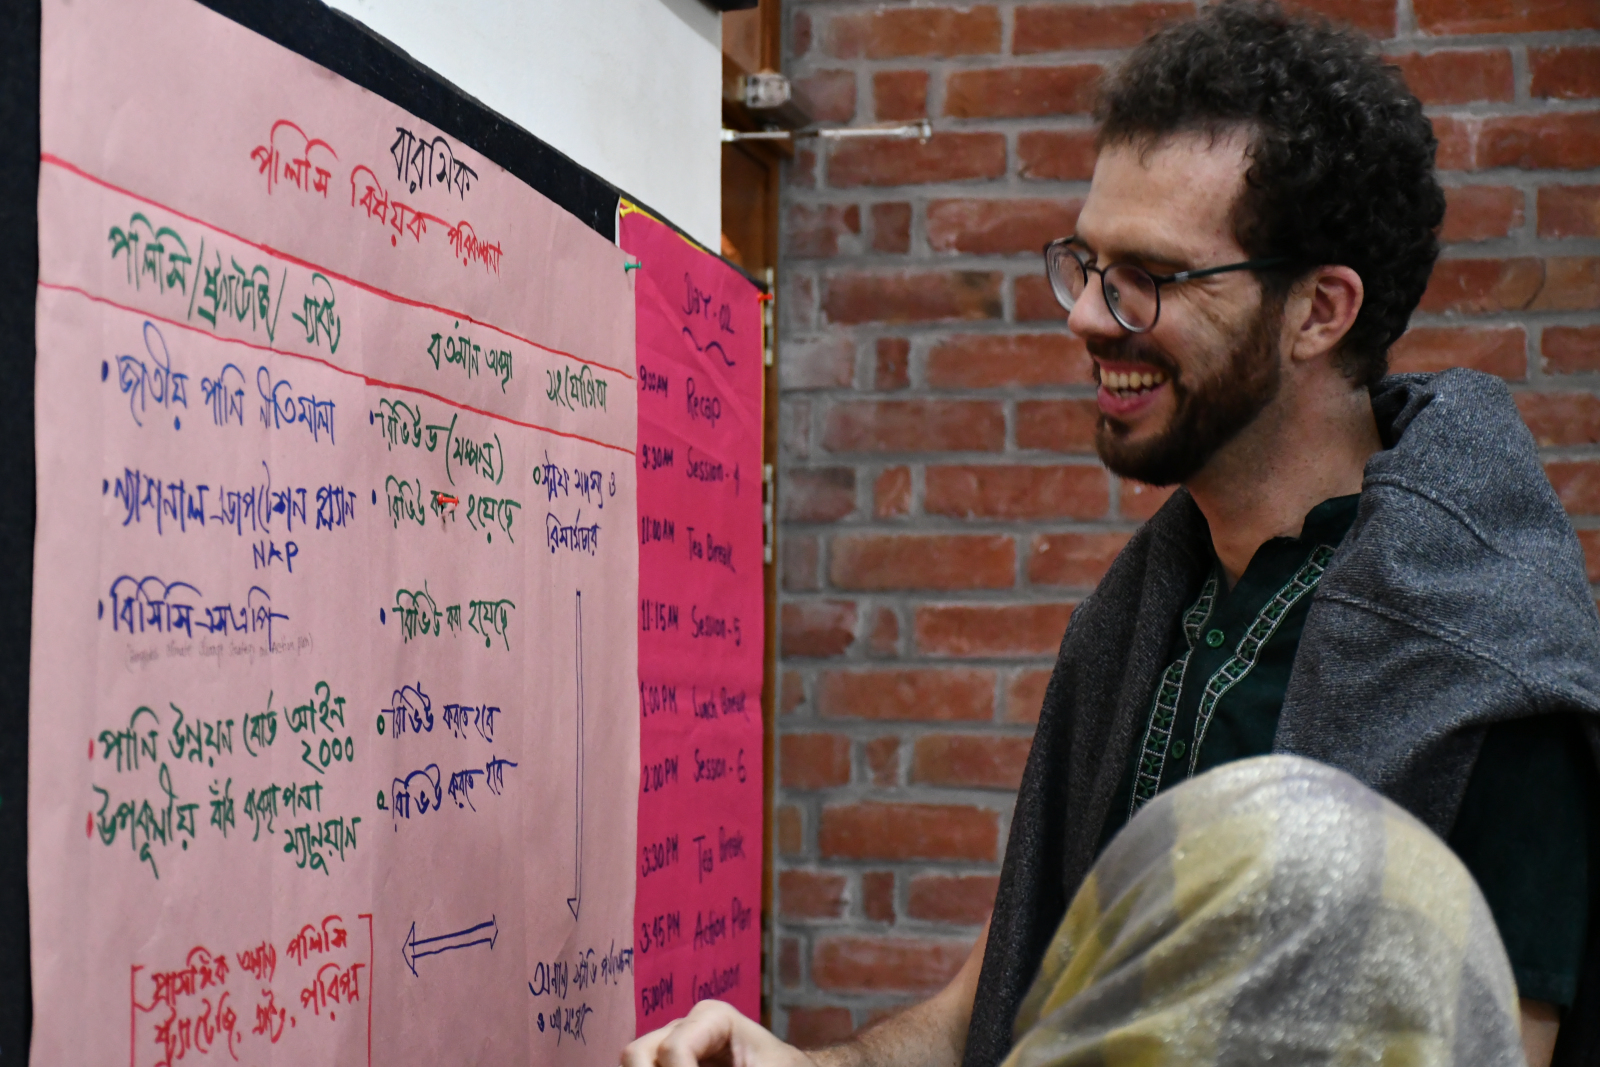 বারসিক
পলিসি বিষয়ক পরিকল্পনা
পলিসি/স্ট্র্যাটেজি/ এ্যাক্ট
বর্তমান অবস্থা
• জাতীয় পানি নীতিমালা
• রিভিউড (সম্পন্ন)
• ন্যাশনাল এডাপটেশন প্ল্যান
NAP
• রিভিউ করা হয়েছে
০ সদস্য ও
রিসার্চার
• বিসিসিএসএপি
• রিভিউ করা হয়েছে
• পানি উন্নয়ন বোর্ড আইন
২০০০
০ রিভিউ করতে হবে
• উপকূলীয় বাঁধ ব্যবস্থাপনা
ম্যানুয়াল
০ রিভিউ করতে হবে
প্রাসঙ্গিক অন্যান্য পলিসি
স্ট্র্যাটেজি, এক্ট, পরিপত্র
অন্যান্য স্টাডি
DAY-02
9:00AM Recap
9:30AM Session-4
11:00AM Tea Break
11:15AM Session-5
1:00PM Lunch Break
2:00PM Session-6
3:30PM Tea Break
3:45PM Action Plan
5:00PM Conclusion